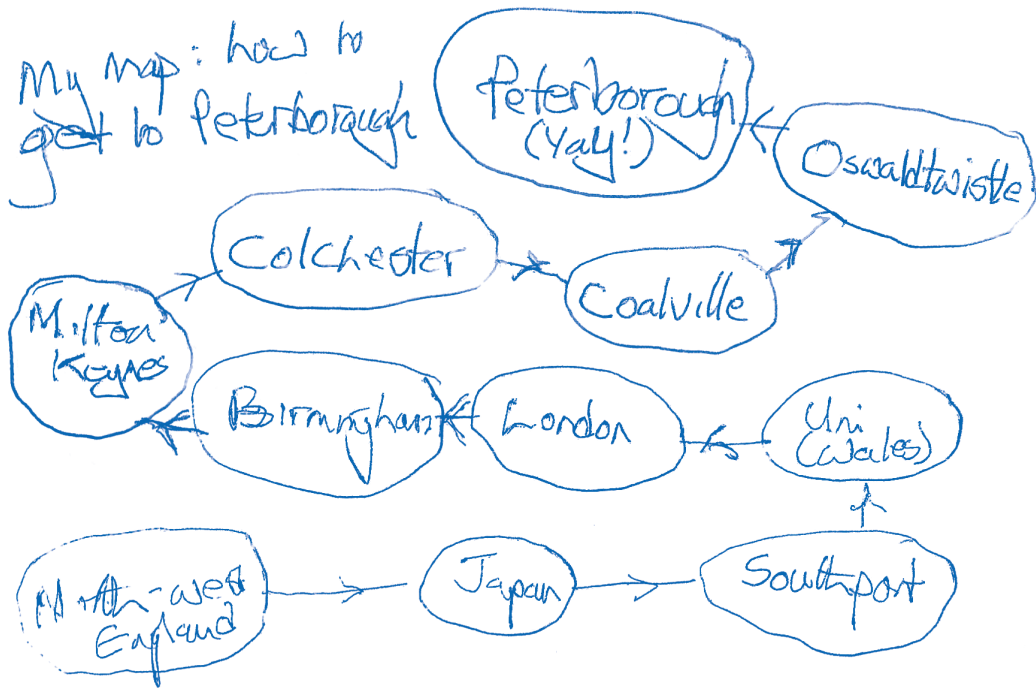 My map: how to
get to Peterborough
Peterborough
(Yay!)
Oswaldtwistle
Colchester
Coalville
Milton
Keynes
Birmingham
London
Uni
(Wales)
North-west
England
Japan
Southport